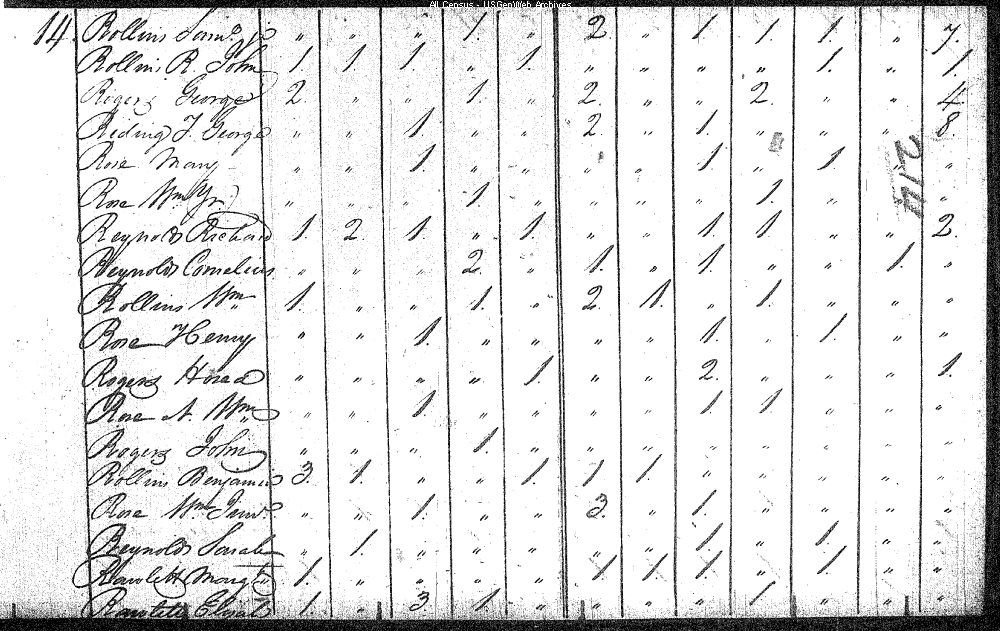 All Census - USGenWeb Archives
14. Rollins Saml. jr " " " 1. " 2 " 1 1. 1. " 7.
Rollins R. John 1. 1. 1. " 1. " " " " 1. " 1.
Rogers George 2. " " 1. " 2. " " 2. " " 4.
Reding T. George " " 1. " " 2. " 1. " " " 8.
Rose Mary " " 1. " " " " 1. " 1. " "
Rose Wm. Jr. " " " 1. " " " " 1. " " "
Reynolds Richard 1. 2. 1. " 1. " " 1. 1. " " 2.
Reynolds Cornelius " " " 2. " 1. " 1. " " 1. "
Rollins Wm 1. " " 1. " 2 1. " 1. " " "
Rose Henry " " 1. " " " " 1. " 1. " "
Rogers Hosea " " " " 1. " " 2. " " " 1.
Rose N. Wm " " 1. " " " " 1 1 " " "
Rogers John " " " 1. " " " " " " " "
Rollins Benjamin 3. 1. " " 1. 1 1. " " " " "
Rose Wm " " 1. " " 3. " 1. " " " "
Reynolds Sarah " 1. " " " " " 1 " 1. " "
Margt 1. " " " " 1 1 1 " 1 " "
Elijah 1. " 3. 1. " " " " 1 " " "
214